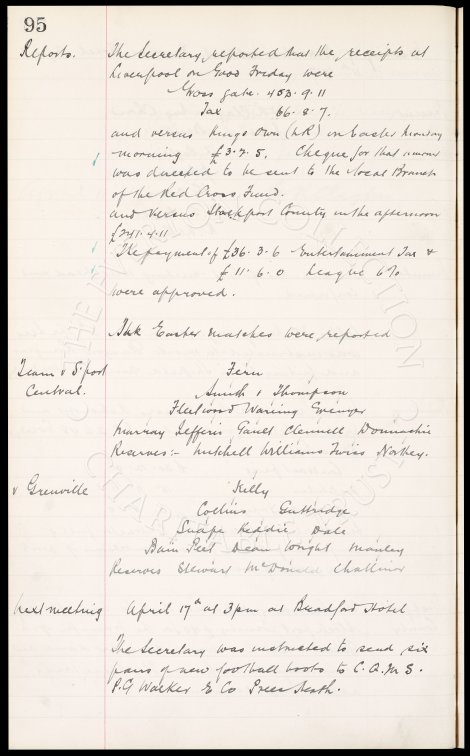 95
Reports. The Secretary, reported that the receipts at
Liverpool on Good Friday were
Gross gate. 453. 9. 11
Tax 66. 8. 7.
and versus Kings Own (LR) on Easter Monday
morning £3. 7. 5. Cheque for that amount
was directed to be sent to the local Branch
of the Red Cross Fund.
and versus Stockport County in the afternoon
£341. 4. 11
The payment of £36. 3. 6 Entertainment Tax &
£11. 6. 0 League 6%
were approved.
The Easter matches were reported
Team v S'port Fern
Central. Smith & Thompson
Fleetwood Waring Grenyer
Murray Jefferis Gault Clennell Donnachie
Reserves:- Mitchell Williams Twiss
v Grenville Kelly
Collins Guttridge
Snape Keddie Dale
Bain Peet Dean Wright Manley
Reserves Stewart McDonald Challinor
Next meeting April 17th at 3pm at Bradford Hotel
The Secretary was instructed to send six
pairs of new football boots to C.Q.M.S.
P.G Walker E Co Prees Heath.
THE EVERTON COLLECTION
CHARITABLE TRUST